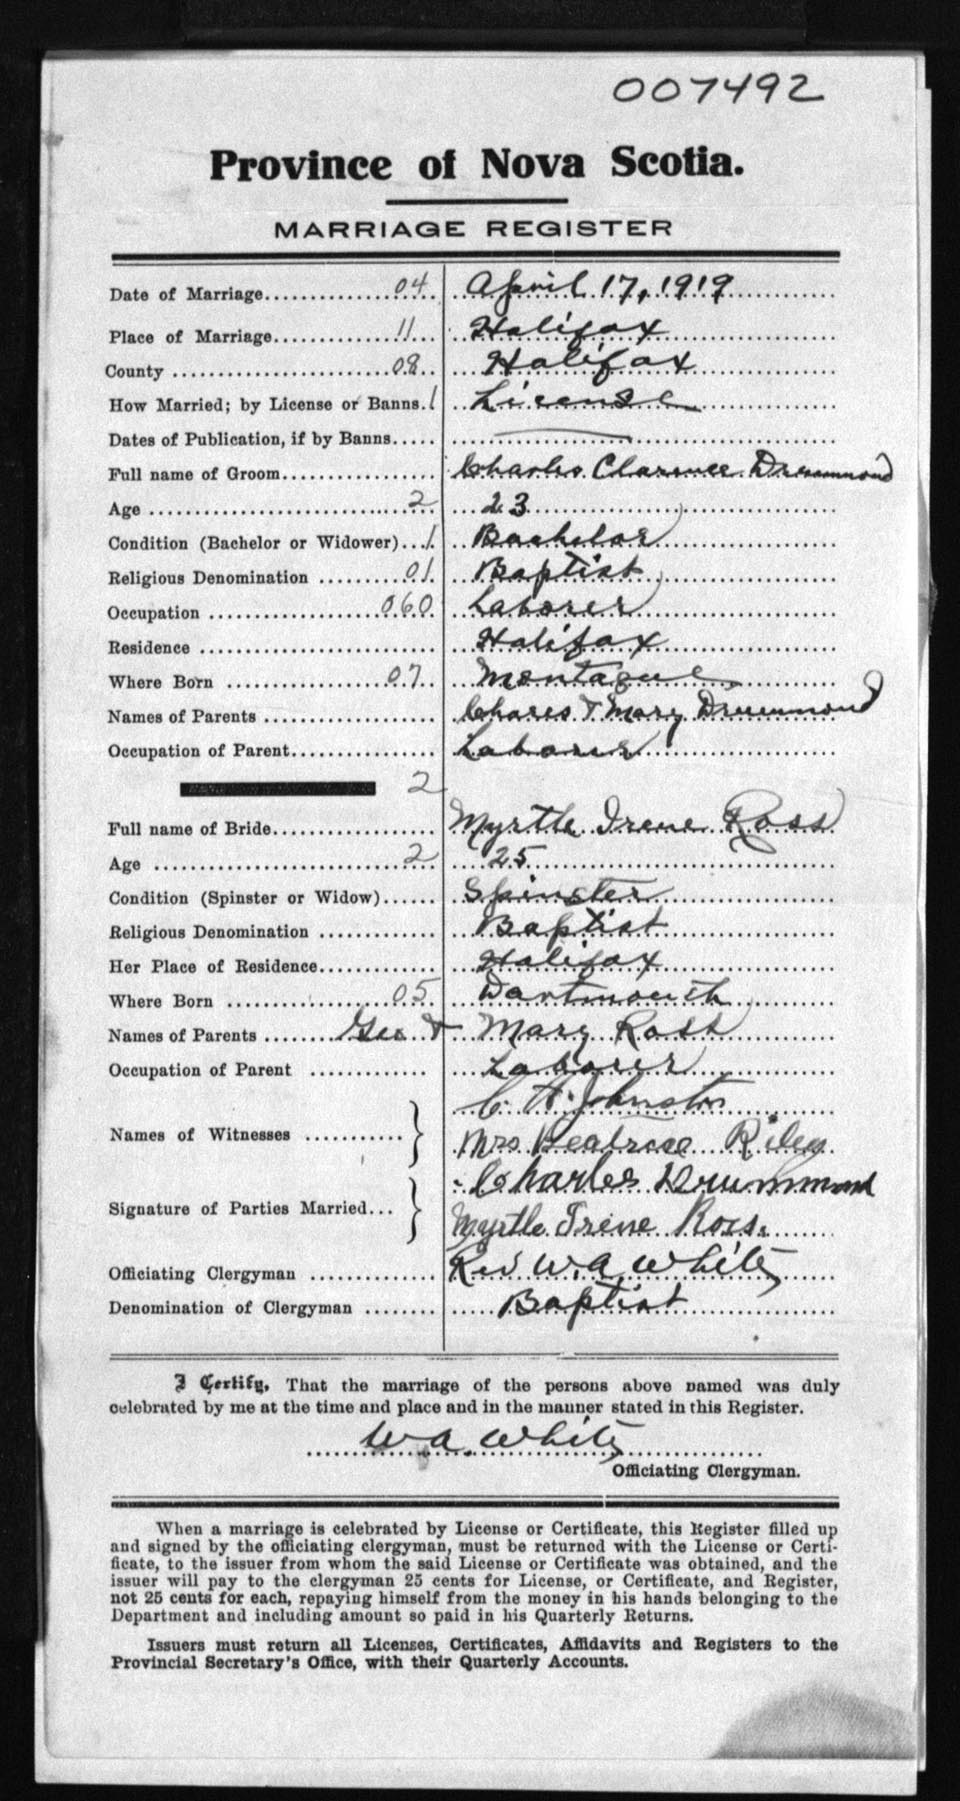 007492
Province of Nova Scotia.
MARRIAGE REGISTER
Date of Marriage 04 April 17, 1919
Place of Marriage 11 Halifax
County 08 Halifax
How Married; by License or Banns. 1 License
Dates of Publication, if by Banns
Full name of Groom Charles Clarence Drummond
Age 2 23
Condition (Bachelor or Widower) 1 Bachelor
Religious Denomination 01 Baptist
Occupation 060 Laborer
Residence Halifax
Where Born 07 Montague
Names of Parents Chares & Mary Drummond
Occupation of Parent Laborer
2
Full name of Bride Myrtle Irene Ross
Age 2 25
Condition (Spinster or Widow) Spinster
Religious Denomination Baptist
Her Place of Residence Halifax
Where Born 05 Dartmouth
Names of Parents Geo & Mary Ross
Occupation of Parent Laborer
C. H. Johnston
Names of Witnesses Mrs Beatrice Riley
Charles Drummond
Signature of Parties Married
Myrtle Irene Ross.
Officiating Clergyman Rev W. A White
Denomination of Clergyman Baptist
I Certify, That the marriage of the persons above named was duly
celebrated by me at the time and place and in the manner stated in this Register.
W.A. White
Officiating Clergyman.
When a marriage is celebrated by License or Certificate, this Register filled up
and signed by the officiating clergyman, must be returned with the License or Certi-
ficate, to the issuer from whom the said License or Certificate was obtained, and the
issuer will pay to the clergyman 25 cents for License, or Certificate, and Register,
not 25 cents for each, repaying himself from the money in his hands belonging to the
Department and including amount so paid in his Quarterly Returns.
Issuers must return all Licenses, Certificates, Affidavits and Registers to the
Provincial Secretary's Office, with their Quarterly Accounts.